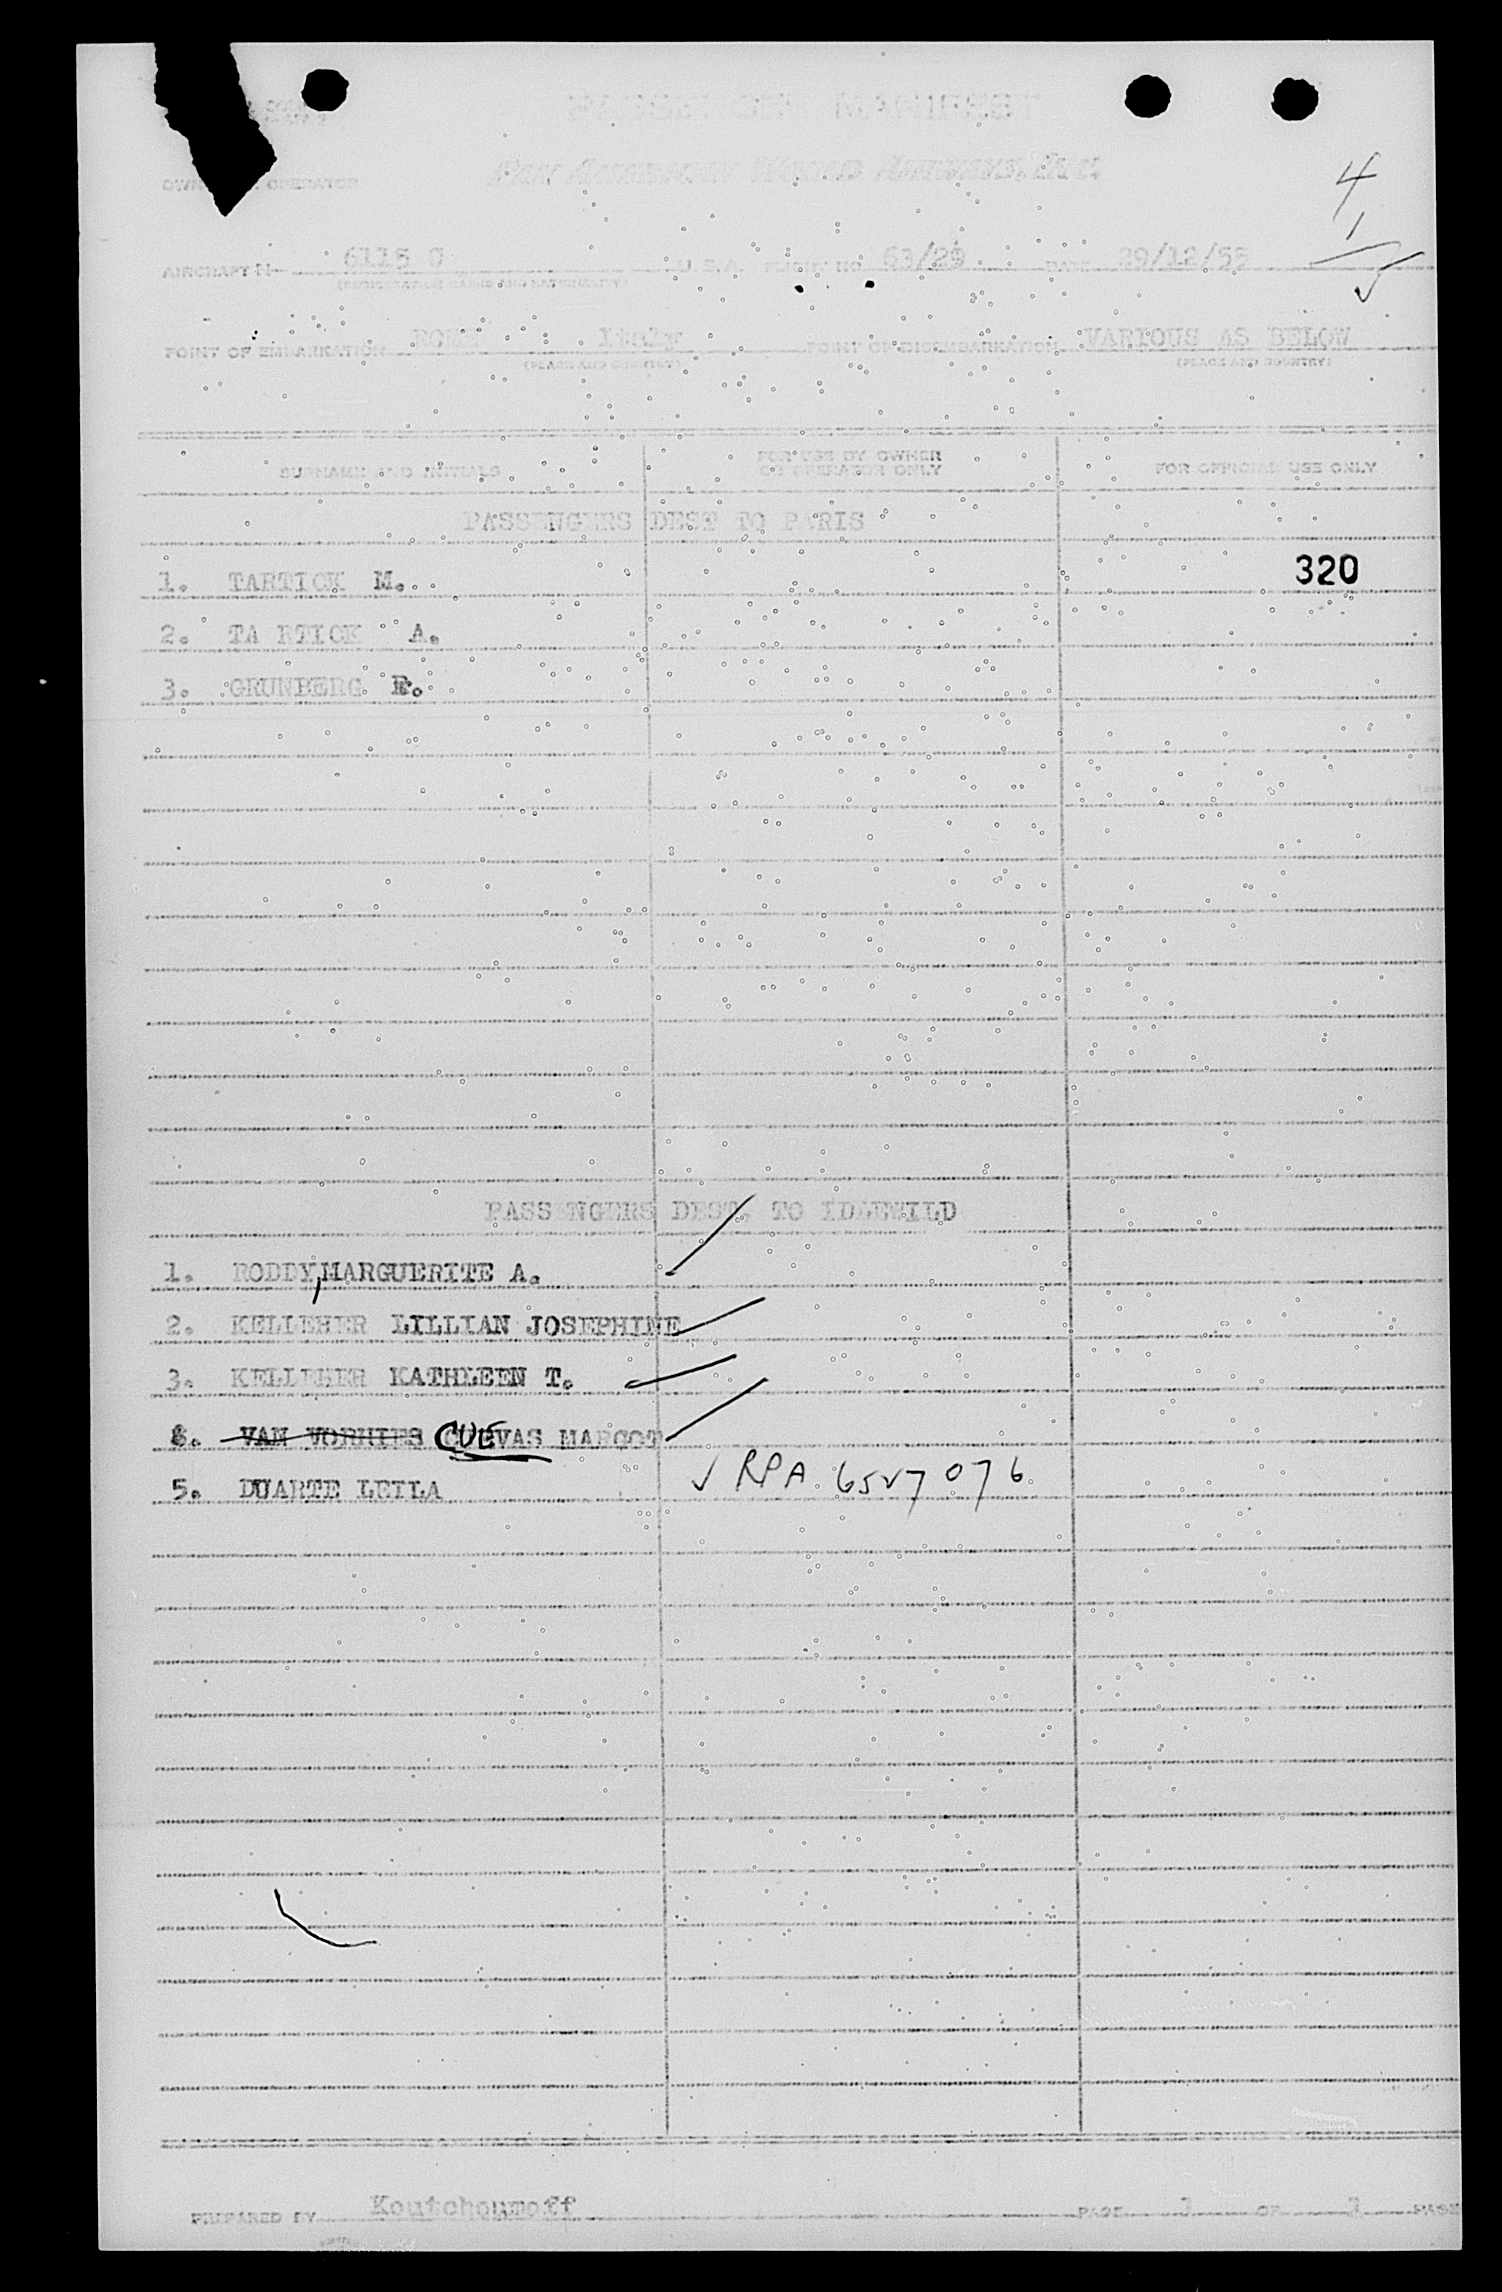 PASSENGER MANIFEST
PAN AMERICAN WORLD AIRWAYS, INC.
OPERATOR
4
1
AIRCRAFT N 6115 C U.S.A. FLIGHT NO 63/29 DATE 29/12/55
(REGISTRATION MARKS AND NATIONALITY)
POINT OF EMBARKATION ROME ITALY POINT OF DISEMBARKATION VARIOUS AS BELOW
(PLACE AND COUNTRY) (PLACE AND COUNTRY)
SURNAME AND INITIALS FOR USE BY OWNER OR OPERATOR ONLY FOR OFFICIAL USE ONLY
PASSENGERS DEST TO PARIS
1. TARTICK M. 320
2. TA RTICK A.
3. GRUNBERG
PASSENGERS DEST. TO IDLEWILD
1. RODDY, MARGUERITE A.
2. KELLEHER LILLIAN JOSEPHINE
3. KELLEHER KATHLEEN T.
VAN VORHIES CUEVAS MARGOT
5. DUARTE LEILA ✓ RPA 6507076
PREPARED BY Koutchoumoff PAGE 3 OF 3 PAGE